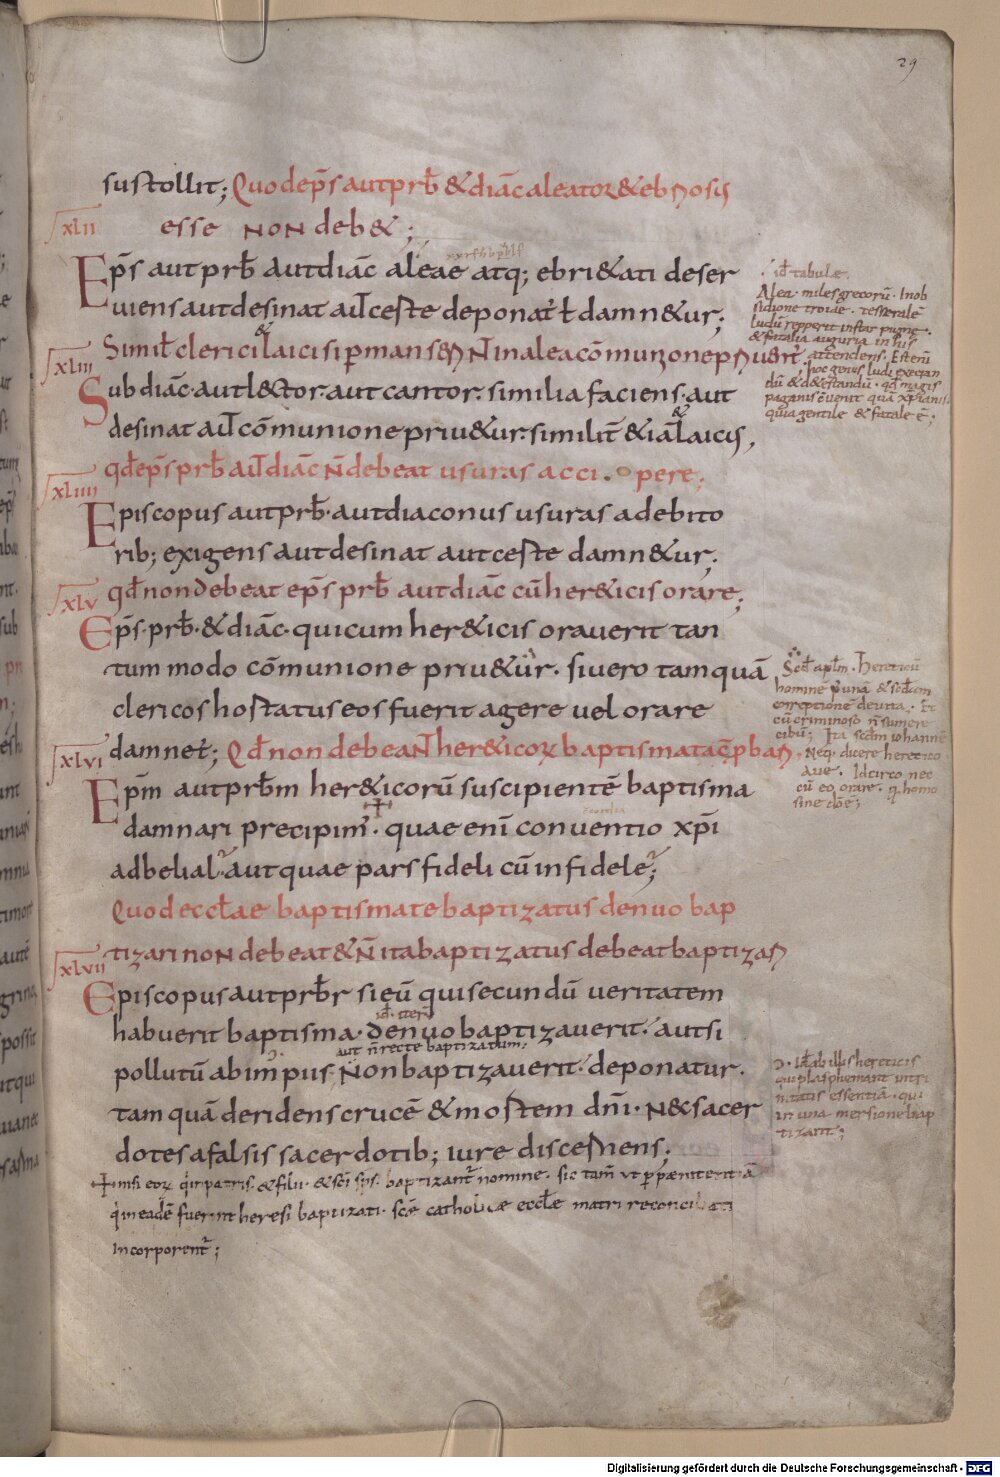 29
sustollit; Quod ep̄s aut prb̄ & diāc aleator & ebriosus
xlii esse non deb&;
Ep̄s aut prb̄ aut diāc aleae atq; ebri&ati deser
uiens aut desinat aut certe deponat᷑ ł damn&ur;
Similit̄ clerici & laici si permanserīt in alea cōmunione priuent᷑
xliii
Subdiāc· aut l&tor· aut cantor· similia faciens· aut
desinat aut cōmunione priu&ur· similit̄ & iā & laicis,
xliiii qđ ep̄s prb̄ aut diāc n̄ debeat usuras acci . pere;
Episcopus aut prb̄· aut diaconus usuras a debito
rib; exigens aut desinat aut certe damn&ur;
xlv qđ non debeat ep̄s prb̄ aut diāc cū her&icis orare;
Ep̄s· prb̄· & diāc· qui cum her&icis orauerit tan
tum modo cōmunione priu&ur· si uero tamquā
clericos hortatus eos fuerit agere uel orare
damnet᷑; Qđ non debeant her&icoꝝ baptismata cōprobari,
xlvi
Ep̄m aut prb̄m her&icorū suscipientē baptisma
damnari precipim᷑· quae enī conuentio xp̄i
ad belial· aut quae pars fideli cū infidele;
Quod eccłae baptismate baptizatus denuo bap
tizari non debeat & n̄ ita baptizatus debeat baptizari
xlvii
Episcopus aut prb̄r si eū qui secundū ueritatem
id· iterū
habuerit baptisma· denuo baptizauerit· aut si
aut n̄ recte baptizatum·
pollutū ab impiis non baptizauerit· deponatur·
tamquā deridens crucē & mortem dn̄i· n& sacer
dotes a falsis sacerdotib; iure discernens;
in patris· & filii· & sc̄i sp̄s· baptizant᷑ nomine· sic tam̄ ut p pęnitentiā
q̇ in eadē fuerint heresi baptizati· sc̄ę catholicae eccłę matri reconciliati
incorporent᷑;
·/· id· tabulę·
Alea· miles grecorū· In ob
sidione troię· tesserale
ludū repperit instar pugnę·
& fatalia auguria in his
attendens· Est enī
hoc genus ludi execran
dū & d&estandū· qđ magis
paganis cōuenit quā xp̄ianis
quia gentile & fatale ē;
Sc̄dm apłm· Hereticū
hominē p unā & sc̄dam
correptionē deuita· Et
cū criminoso n̄ sumere
cibū; Ita sc̄dm iohannē
Neq· dicere heretico
aue· Idcirco nec
cū eo orare·
id· ab illis hereticis
qui blasphemant utri
nitatis essentiā· qui
in una mersione bap
tizant;
Digitalisierung gefördert durch die Deutsche Forschungsgemeinschaft · DFG